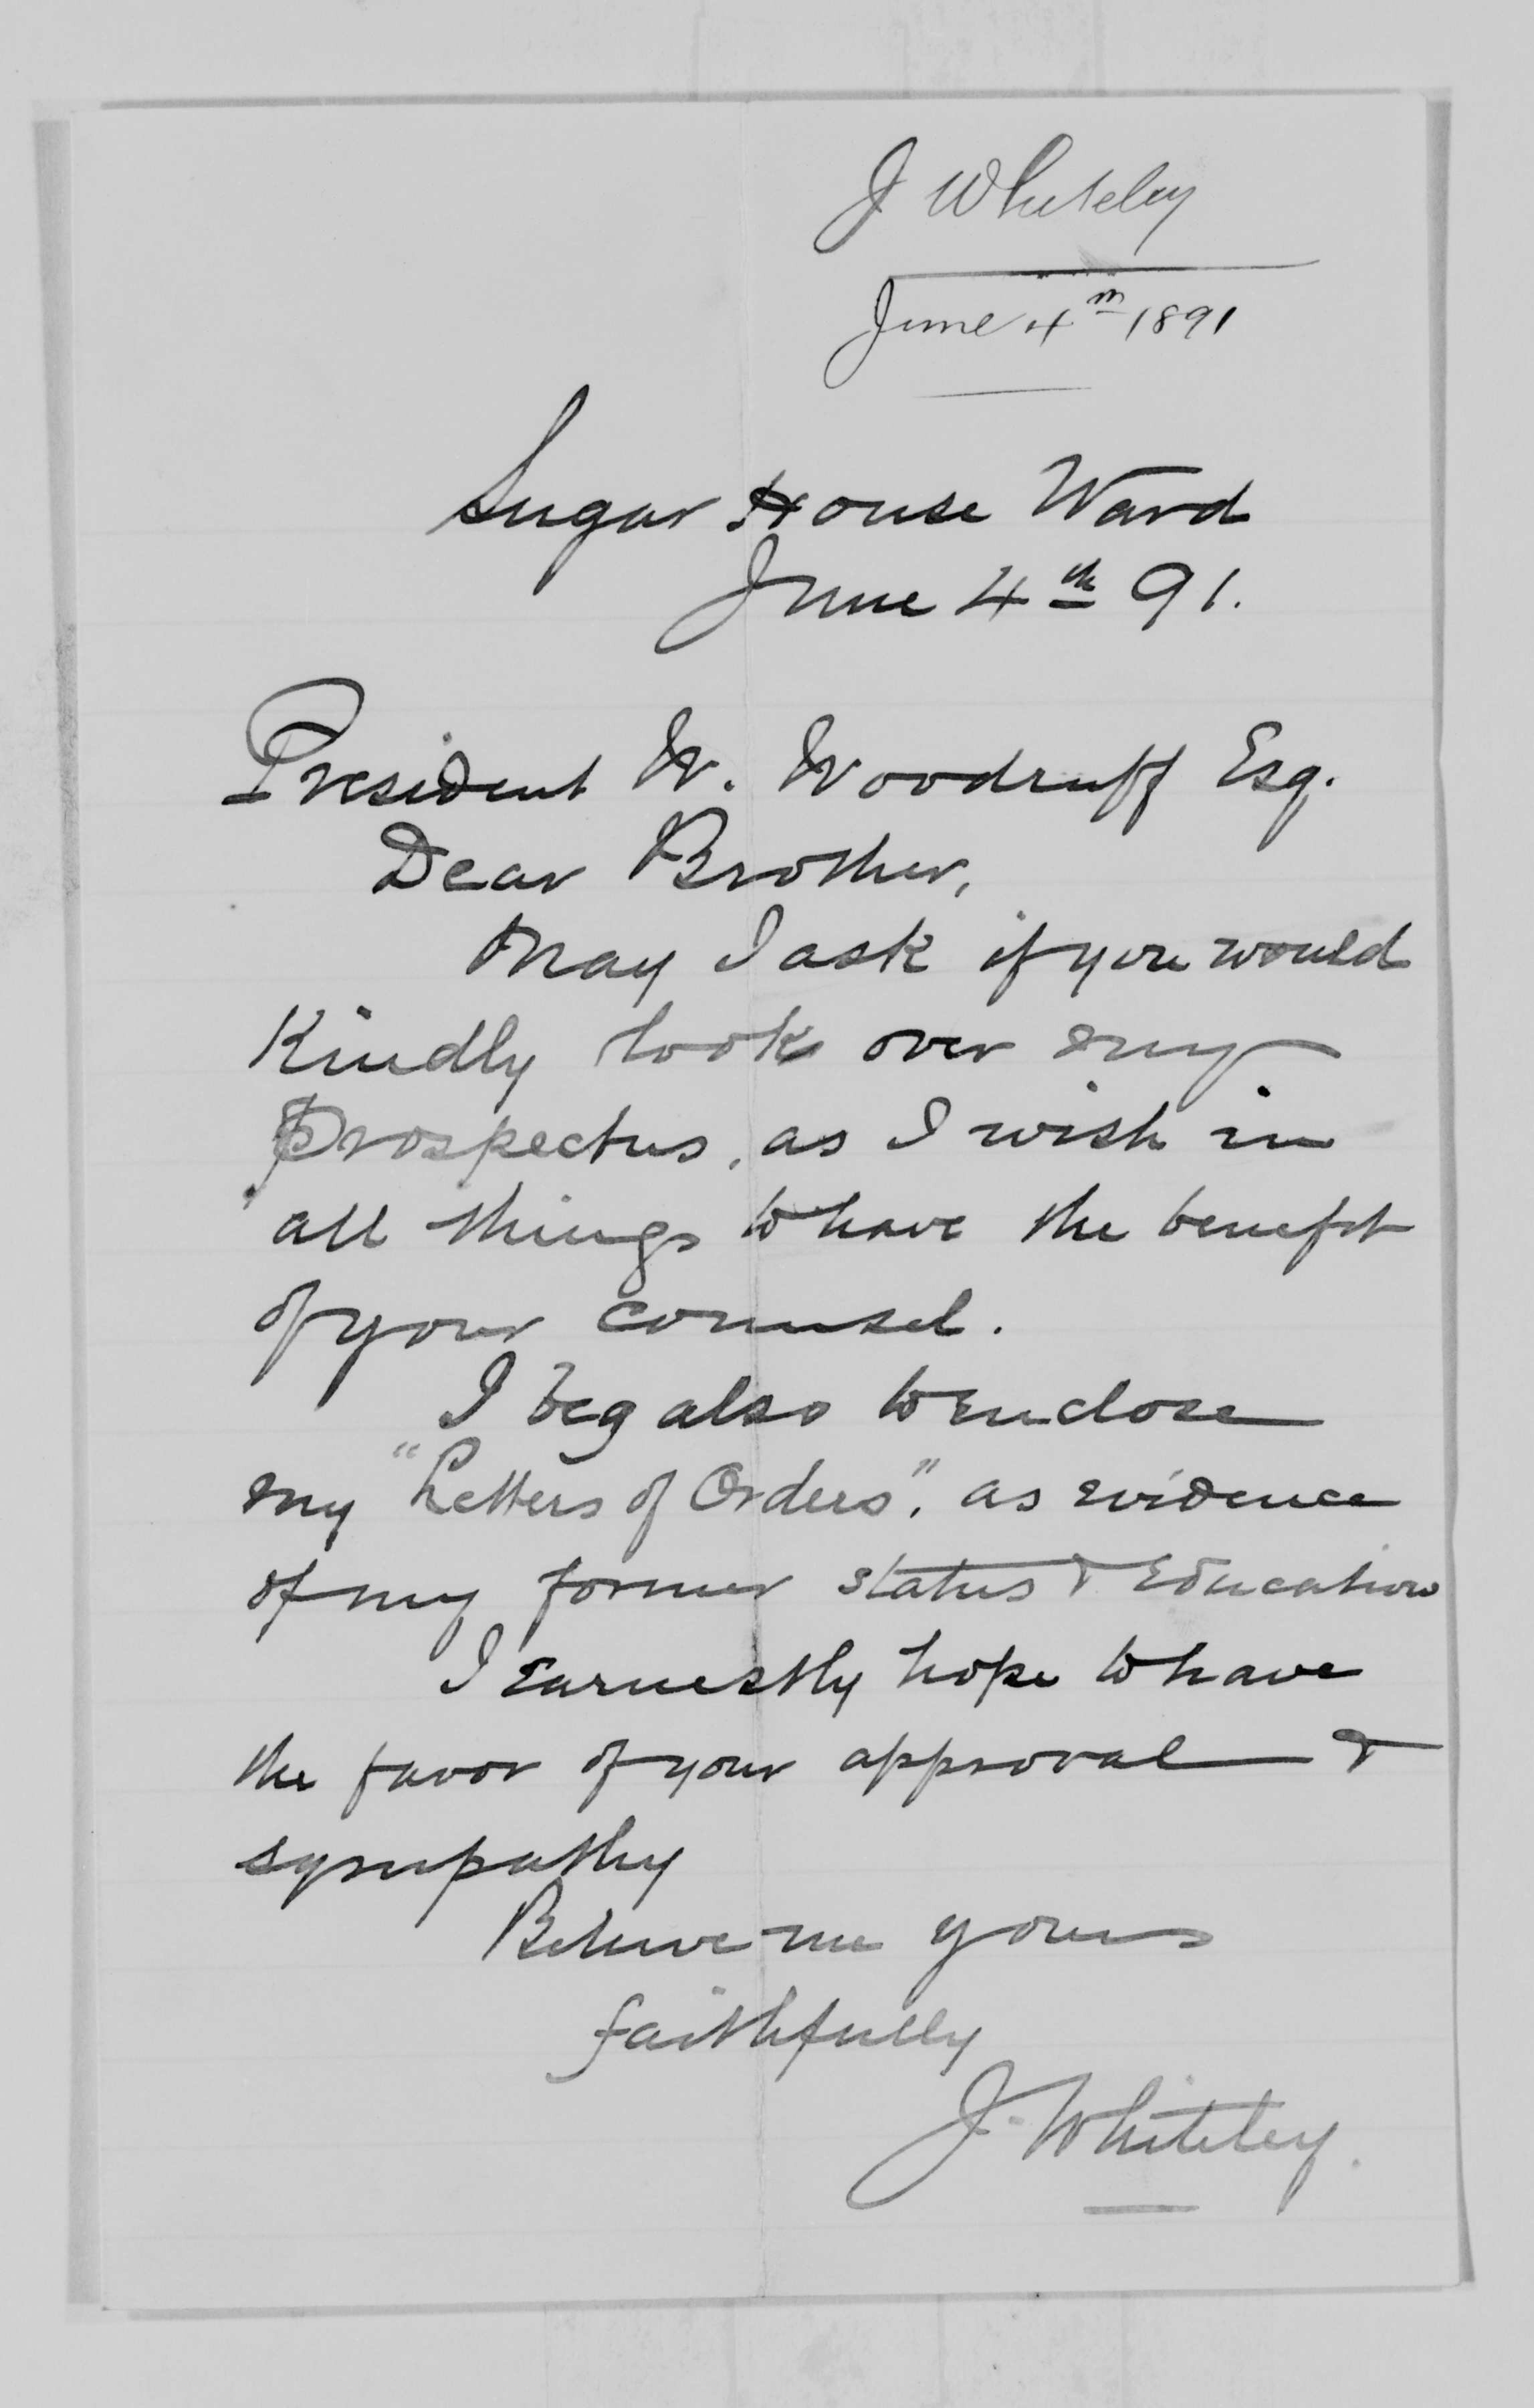 J Whiteley
June 4th 1891
Sugar House Ward
June 4th 91.
President W. Woodruff Esq.
Dear Brother,
May I ask if you would
Kindly look over my
Prospectus, as I wish in
all things to have the benefit
of your counsel.
I beg also to enclose
my "Letters of Orders", as evidence
of my former status & Education
I earnestly hope to have
the favor of your approval &
sympathy
Believe me yours
faithfully
J. Whiteley.